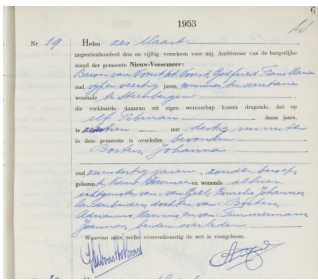 1953
Nr 19 Heden zes Maart
negentienhonderd drie en vijftig verscheen voor mij, Ambtenaar van de burgerlijke
stand der gemeente Nieuw-Vossemeer:
Baron van Voorst tot Voorst, Godfried Frans Maria
oud vijf en veertig jaren, commies ter secretarie
wonende te Steenbergen
die verklaarde daarvan uit eigen wetenschap kennis dragende, dat op
elf Februari deze jaren,
te uur dertig minuten
in deze gemeente is overleden bevonden
Bosters Johanna
oud jaren, zonder beroep,
geboren te Nieuw-Vossemeer en wonende alhier
echtgenote van van Johannes
dochter van Bosters,
Adrianus Marinus en van Timmermans
Joanna, beiden overleden
Waarvan akte, welke overeenkomstig de wet is voorgelezen.